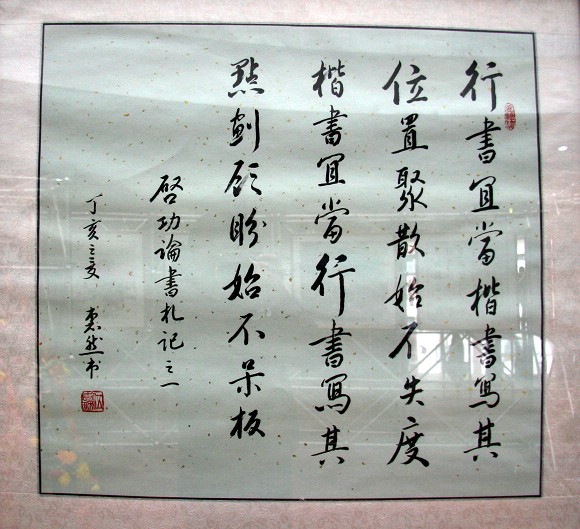 行書宜當楷書寫其
位置聚散始不失度
楷書宜當行書寫其
點劃顧盼始不呆板
啓功論書札記之一
丁亥之夏 惠然书